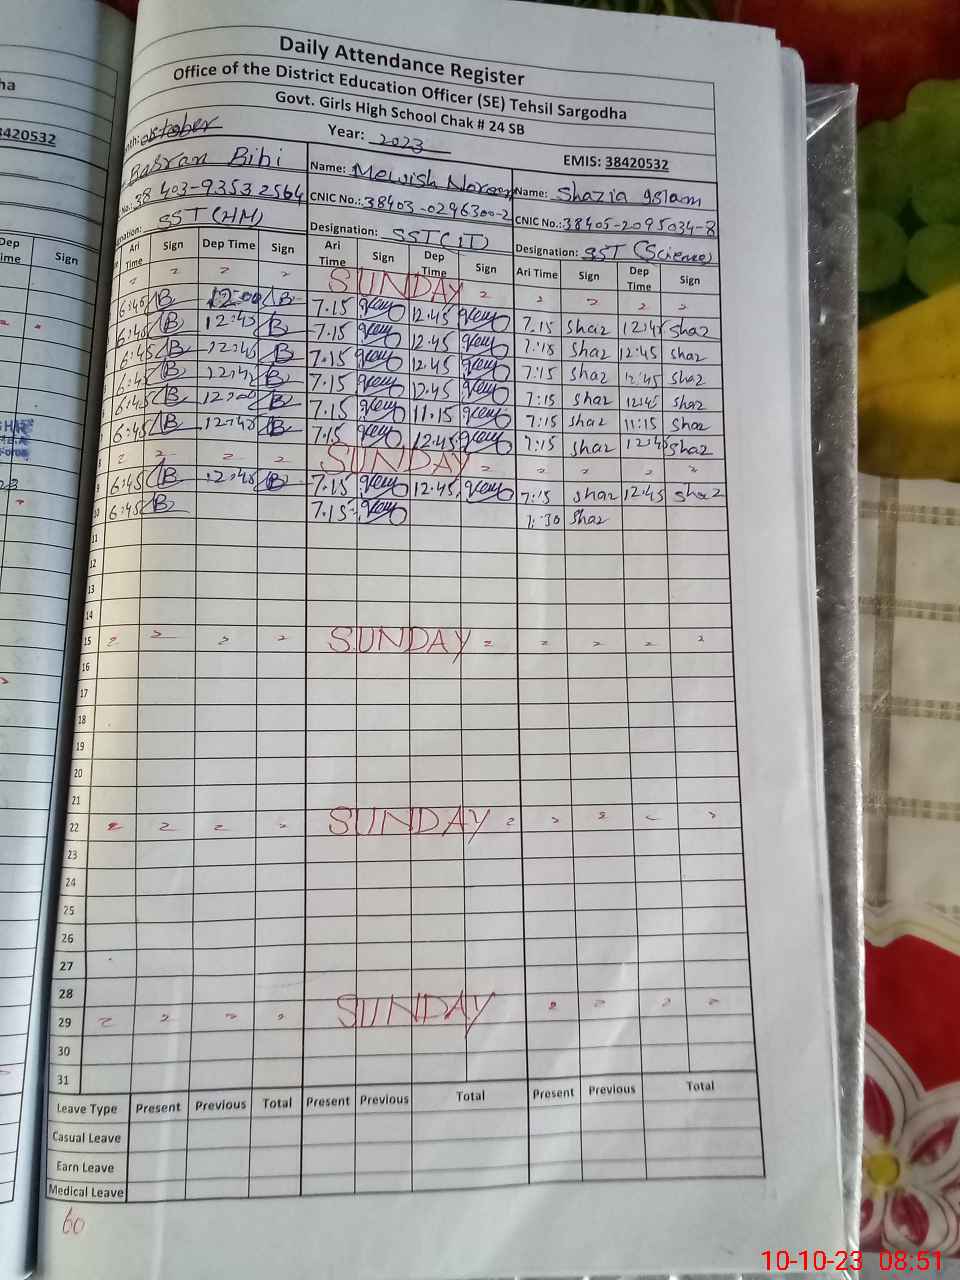 Daily Attendance Register
Office of the District Education Officer (SE) Tehsil Sargodha
Govt. Girls High School Chak # 24 SB
October Year: 2023 EMIS: 38420532
Bibi Name: Mewish Noreen Name: Shazia aslam
No.: 38403-93532564 CNIC No.: 38403-0296300-2 CNIC No.: 38405-2095034-8
SST (HM) Designation: SST (IT) Designation: SST (Science)
Ari Time Sign Dep Time Sign Ari Time Sign Dep Time Sign Ari Time Sign Dep Time Sign
SUNDAY
6:45 B 12:00 B 7.15 12.45 7.15 shaz 12:45 shaz
6:45 B 12:45 B 7.15 12.45 7:15 shaz 12:45 shaz
6:45 B 12:45 B 7.15 12.45 7:15 shaz 12:45 shaz
6:45 B 12:45 B 7.15 12.45 7:15 shaz 12:45 shaz
6:45 B 12:00 B 7.15 11.15 7:15 shaz 11:15 shaz
6:45 B 12:45 B 7.15 12.45 7:15 shaz 12:45 shaz
8 SUNDAY
9 6:45 B 12:45 B 7.15 12.45 7:15 shaz 12:45 shaz
10 6:45 B 7.15 7:30 shaz
11
12
13
14
15 SUNDAY
16
17
18
19
20
21
22 SUNDAY
23
24
25
26
27
28
29 SUNDAY
30
31
Leave Type Present Previous Total Present Previous Total Present Previous Total
Casual Leave
Earn Leave
Medical Leave
60
ha
8420532
Dep
ime
Sign
10-10-23 08:51